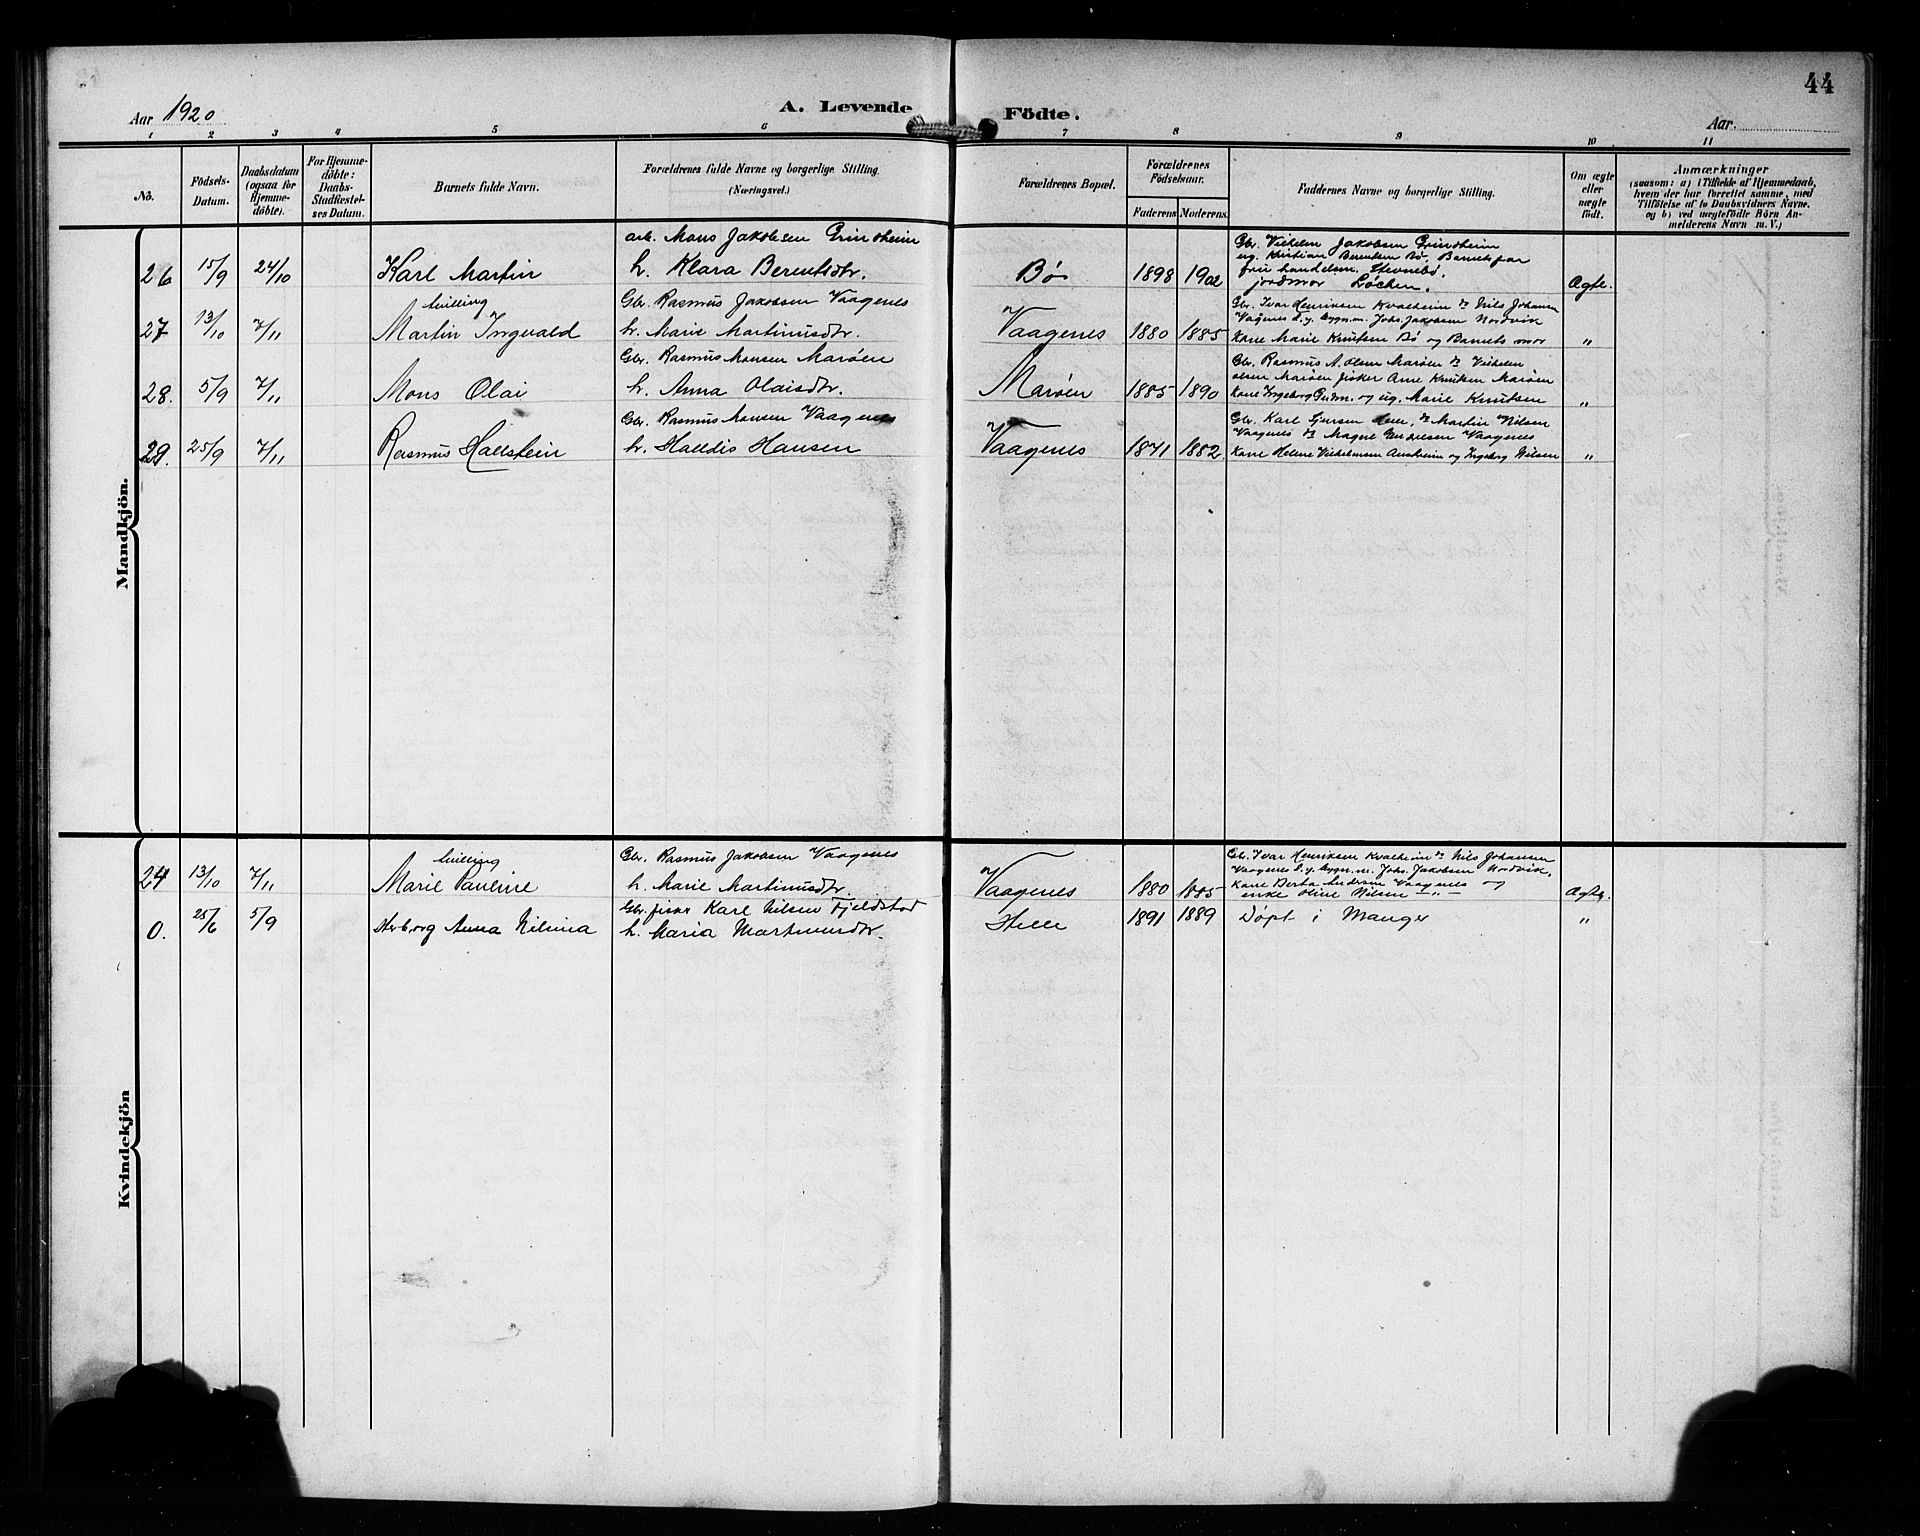 Aar 1920
A. Levende Födte.
44
Aar.
1 2 3 4 5 6 7 8 9 10 11
No.
Födsels-Datum.
Daabsdatum (ogsaa for Hjemmedöbte).
For Hjemmedöbte: Daabs-Stadfæstelses Datum.
Barnets fulde Navn.
Forældrenes fulde Navne og borgerlige Stilling. (Næringsvei.)
Forældrenes Bopæl.
Forældrenes Födselsaar.
Faderens Moderens
Faddernes Navne og borgerlige Stilling.
Om ægte eller uægte födt.
Anmærkninger
(saasom: a) i Tilfælde af Hjemmedaab,
hvem der har forrettet samme, med
Tilföielse af to Daabsvidners Navne,
og b) ved uægtefödte Börn An-
melderens Navn m. V.)
Mandkjön.
arb. Mons Jakobsen Grindheim
Gbr. Vilhelm Jakobsen Grindheim
26 15/9 24/10 Karl Martin h. Klara Berentsdtr. Bø 1898 1902 Ægte.
ug. Kristian Berentsen Bø, Barnets far
fru handelsm. Stevnebø,
jordmor Løchen.
tvilling Gbr. Rasmus Jakobsen Vaagenes
Gbr. Ivar Henriksen Kvalheim do Nils Johansen
27 13/10 7/11 Martin Ingvald h. Marie Martinusdtr. Vaagenes 1880 1885 "
Vaagenes d.y. bygn.m. Johs. Jakobsen Nordvik
Kone Marie Knutsen Bø og Barnets mor
Gbr. Rasmus Monsen Marøen
Gbr. Rasmus A. Olsen Marøen do Vilhelm
28. 5/9 7/11 Mons Olai h. Anna Olaisdtr. Marøen 1885 1890 "
Olsen Marøen fisker Arne Knutsen Marøen
Kone Ingeborg Gudm. og ug. Marie Knutsen
Gbr. Rasmus Monsen Vaagenes
Gbr. Karl Sjursen do Martin Nilsen
29. 25/9 7/11 Rasmus Hallstein h. Halldis Hansen Vaagenes 1871 1882. "
Vaagenes do Magne Vaagenes
Kone Helene Vilhelmsen Austrheim og Ingeborg Nilsen
Kvindekjön
tvilling Gbr. Rasmus Jakobsen Vaagenes
Gbr. Ivar Henriksen Kvalheim do Nils Johansen
24 13/10 7/11 Marie Pauline h. Marie Martinusdtr. Vaagenes 1880 1885 Ægte.
Vaagenes d.y. bygn.m. Johs. Jakobsen Nordvik,
Kone Berta Andersen Vaagenes og
enke Oline Nilsen — " —
Gbr. fisker Karl Nilsen Fjeldstad
0. 25/6 5/9 Herborg Anna Nilsina h. Maria Martinusdtr. Helle 1891 1889 Døpt i Manger "